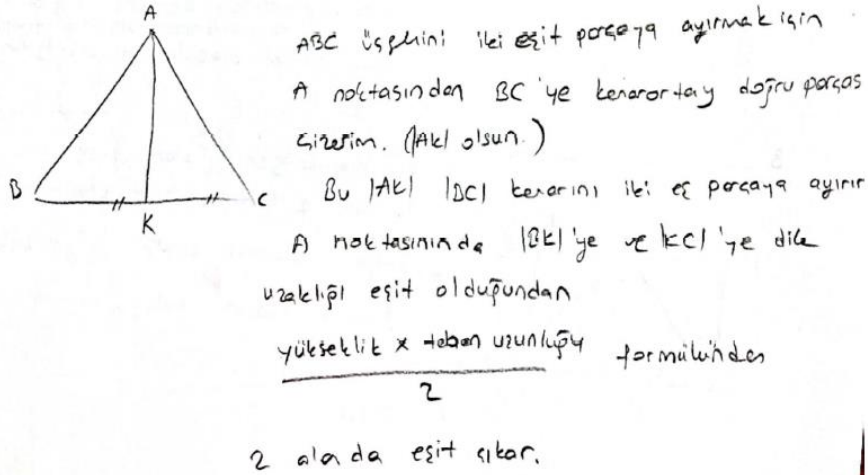 A
B
K
C
ABC üçgenini iki eşit parçaya ayırmak için
A noktasından BC'ye kenarortay doğru parças
çizerim. (|AK| olsun.)
Bu |AK| |BC| kenarını iki eş parçaya ayırır
A noktasınında |BK|'ye ve |KC|'ye dik
uzaklığı eşit olduğundan
yükseklik x taban uzunluğu formülünden
2
2 alanda eşit çıkar.